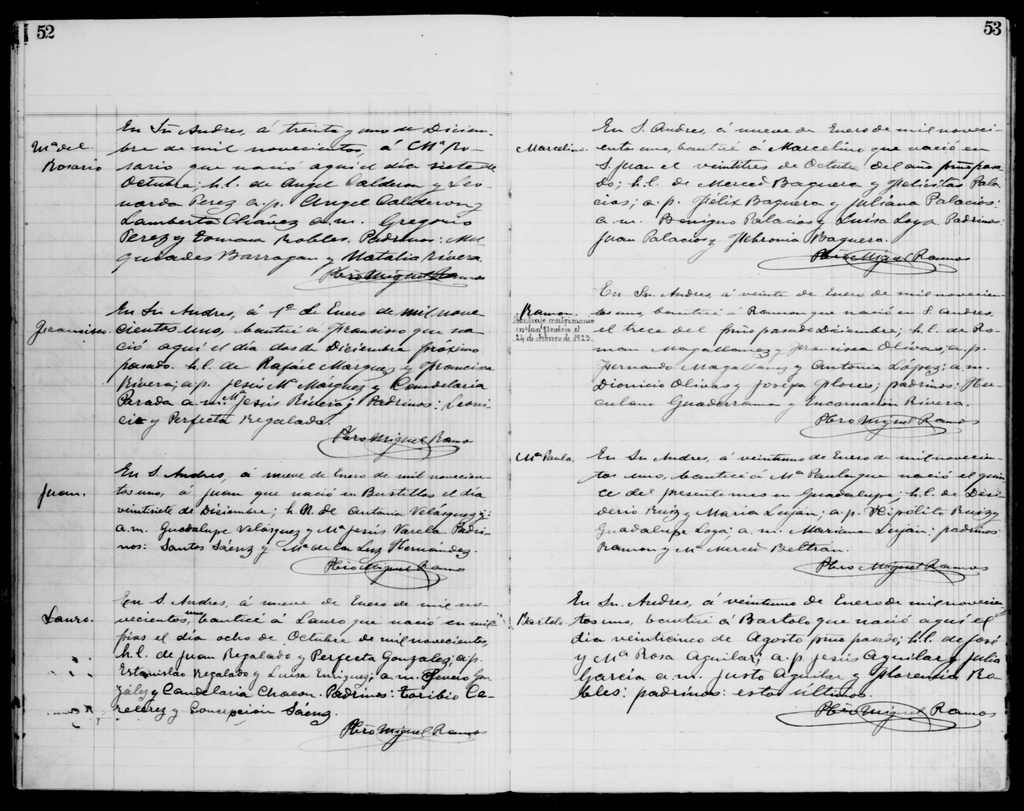 52
Ma del
Rosario
En Sn Andres, á treinta y uno de Diciem-
bre de mil novecientos, á Ma Ro-
sario que nació aquí el día siete de
Octubre; h.l. de Angel Calderon y Leo-
narda Perez a.p. Angel Calderon y
Lamberta Chávez a.m. Gregorio
Perez y Tomasa Robles. Padrinos: Mel-
quiades Barragan y Natalia Rivera
Pbro Miguel Ramos
Francisco
En Sn Andres, á 1o de Enero de mil nove-
cientos uno, bauticé a Francisco que na-
ció aquí el día dos de Diciembre próximo
pasado. h.l. de Rafael Marquez y Francisca
Rivera; a.p. Jesús Ma Marquez y Candelaria
Parada a.m. Ma Jesús Rivera; Padrinos: Leoni-
cia y Perfecta Regalado.
Pbro Miguel Ramos
Juan.
En S. Andres, á nueve de Enero de mil novecien-
tos uno, á Juan que nació en Bustillos el día
veintisiete de Diciembre; h.N. de Antonia Velázquez;
a.m. Guadalupe Velázquez y Ma Jesús Varela Padri-
nos: Santos Sáenz y Ma de la Luz Hernández.
Pbro Miguel Ramos
Lauro.
En S. Andres, á nueve de Enero de mil no-
vecientos uno, bauticé a Lauro que nació en
el día ocho de Octubre de mil novecientos,
h.l. de Juan Regalado y Perfecta Gonzalez; a.p.
Estanislao Regalado y Luisa Enriquez; a.m. Gon-
zález y Candelaria Chacon. Padrinos: Toribio
y Concepción Sáenz.
Pbro Miguel Ramos
53
Marcelino
En S. Andres, á nueve de Enero de mil noveci-
ento uno, bauticé á Marcelino que nació en
S. Juan el veintitres de Octubre del año pmo pasa-
do; h.l. de Merced Baquera y Felicitas Pala-
cios; a.p. Félix Baquera y Juliana Palacios:
a.m. Benigno Palacios y Luisa Loya Padrinos
Juan Palacios y Febronia Baquera.
Pbro Miguel Ramos
Ramon.
24 de febrero de 1923.
En Sn Andres, á veinte de Enero de mil novecien-
tos uno, bauticé á Ramon que nació en S. Andres
el trece del pmo pasado Diciembre; h.l. de Ro-
man Magallanez y Francisca Olivas; a.p.
Fernando Magallanez y Antonia López; a.m.
Dionicio Olivas y Josefa Flores; padrinos: Her-
culano Guaderrama y Encarnacion Rivera.
Pbro Miguel Ramos
Ma Paula.
En Sn Andres, á veintiuno de Enero de mil novecien-
tos uno, bauticé á Ma Paula que nació el quin-
ce del presente mes en Guadalupe; h.l. de Desi-
derio Ruiz y Maria Luján; a.p. Hipólito Ruiz y
Guadalupe Loya; a.m. Mariana Luján: padrinos
Ramon y Ma Merced Beltran.
Pbro Miguel Ramos
Bartolo
En Sn Andres, á veintiuno de Enero de mil novecien-
tos uno, bauticé á Bartolo que nació aquí el
día veinticinco de Agosto pmo pasado; h.l. de José
y Ma Rosa Aguilar; a.p. Jesús Aguilar y Julia
García a.m. Justo Aguilar y Florencia Ro-
bles: padrinos: estos últimos.
Pbro Miguel Ramos